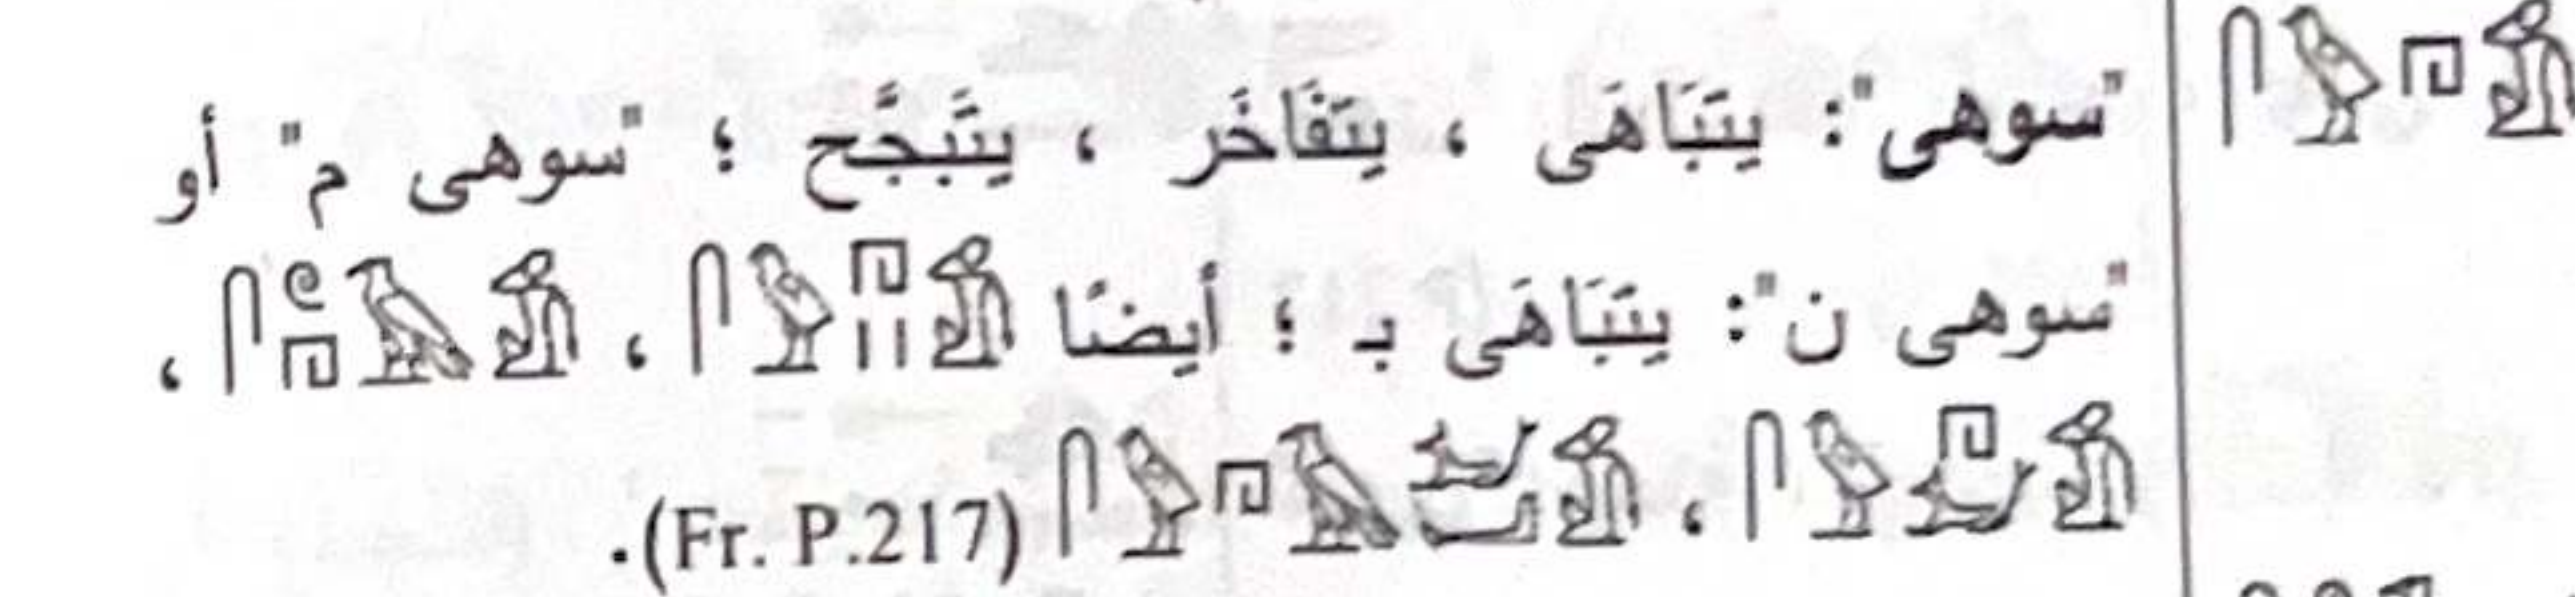 𓋴𓅱𓉔𓀁
"سوهى": يَتَبَاهَى ، يَتَفَاخَر ، يَتَبَجَّح ؛ "سوهى م" أو
"سوهى ن": يَتَبَاهَى بـ ؛ أيضًا 𓋴𓅱𓉔𓏭𓀁 ، 𓋴𓏲𓉔𓄿𓀁 ،
𓋴𓅱𓉔𓅷𓀁 ، 𓋴𓅱𓉔𓄿 𓀁 (Fr. P.217).